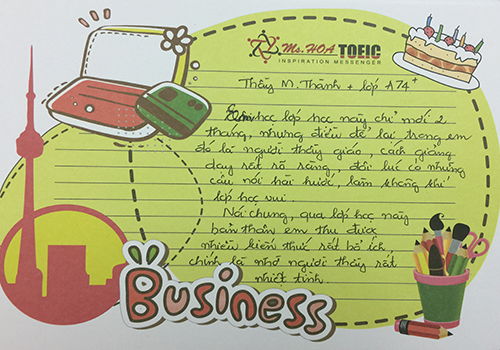 Ms.HOA TOEIC
INSPIRATION MESSENGER
Thầy M. Thành + lớp A74+
học lớp học này chỉ mới 2
tháng, nhưng điều để lại trong em
đó là người thầy giáo, cách giảng
dạy rất rõ ràng, đôi lúc có những
câu nói hài hước, làm không khí
lớp học vui.
Nói chung, qua lớp học này
bản thân em thu được
nhiều kiến thức rất bổ ích
chính là nhờ người thầy rất
nhiệt tình.
Business